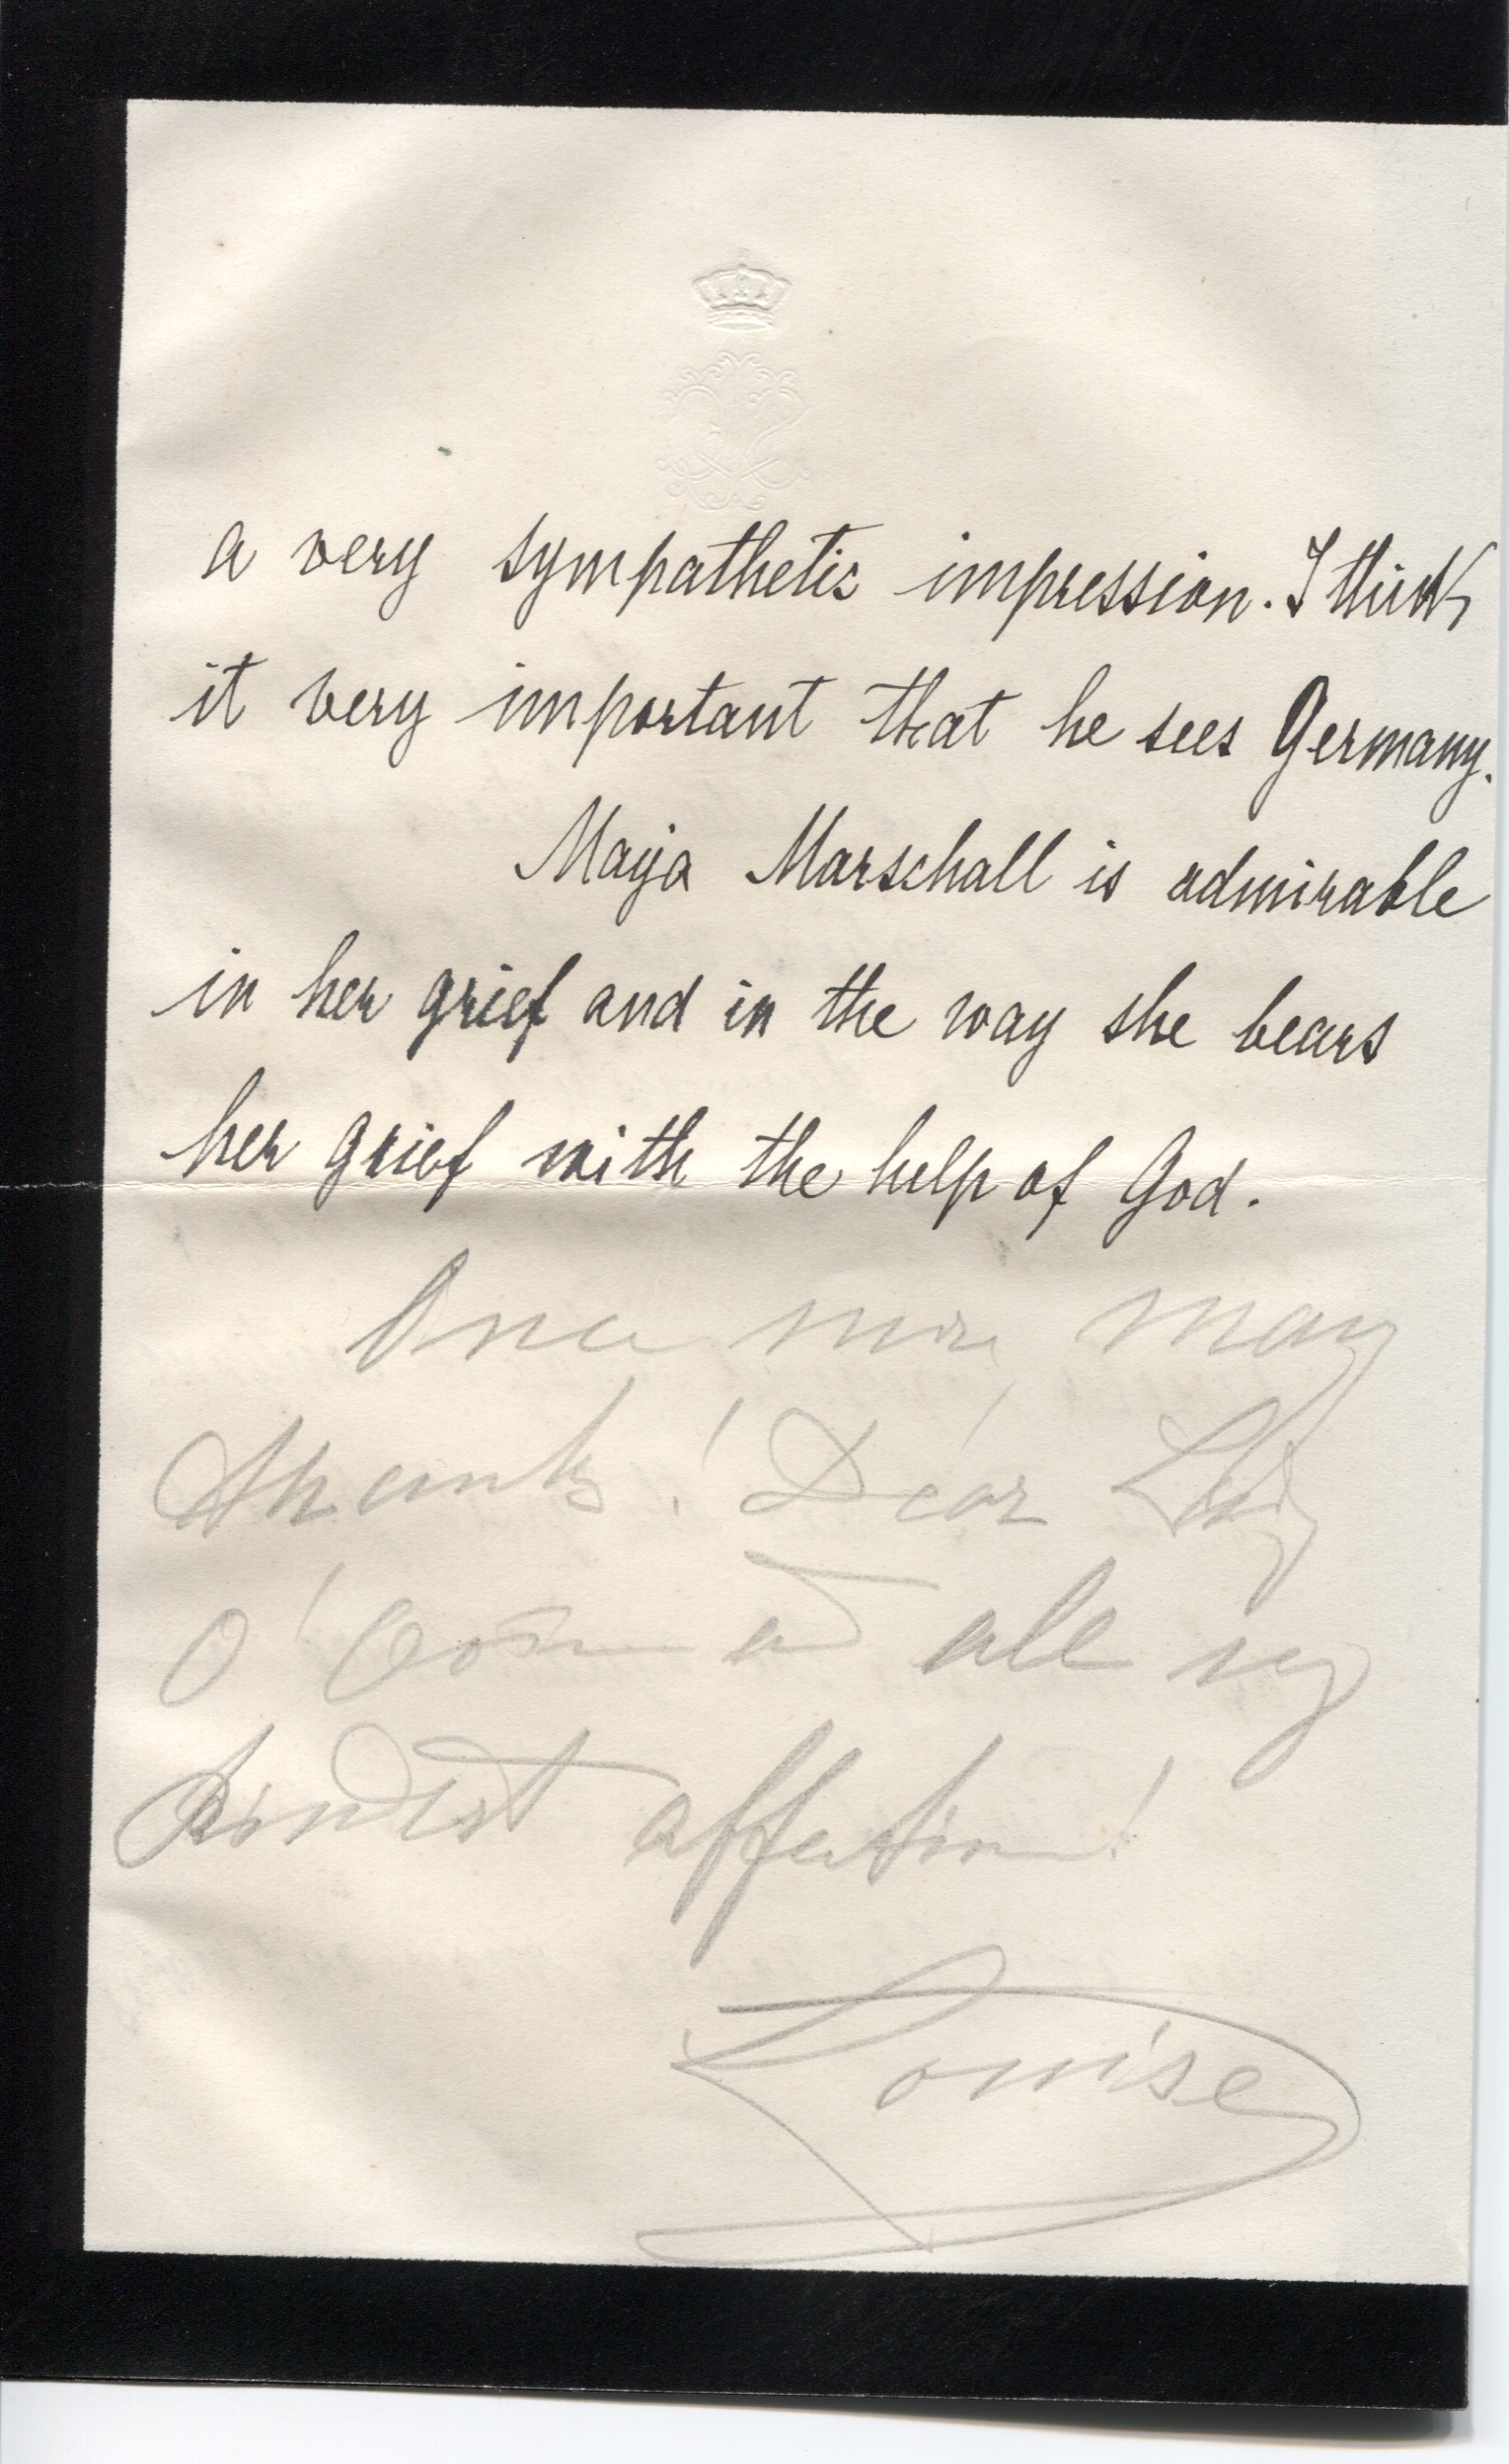 a very sympathetic impression. I think
it very important that he sees Germany.
Maija Marschall is admirable
in her grief and in the way she bears
her grief with the help of God.
Once more many
thanks! Dear
O' and all my
kindest affection!
Louise